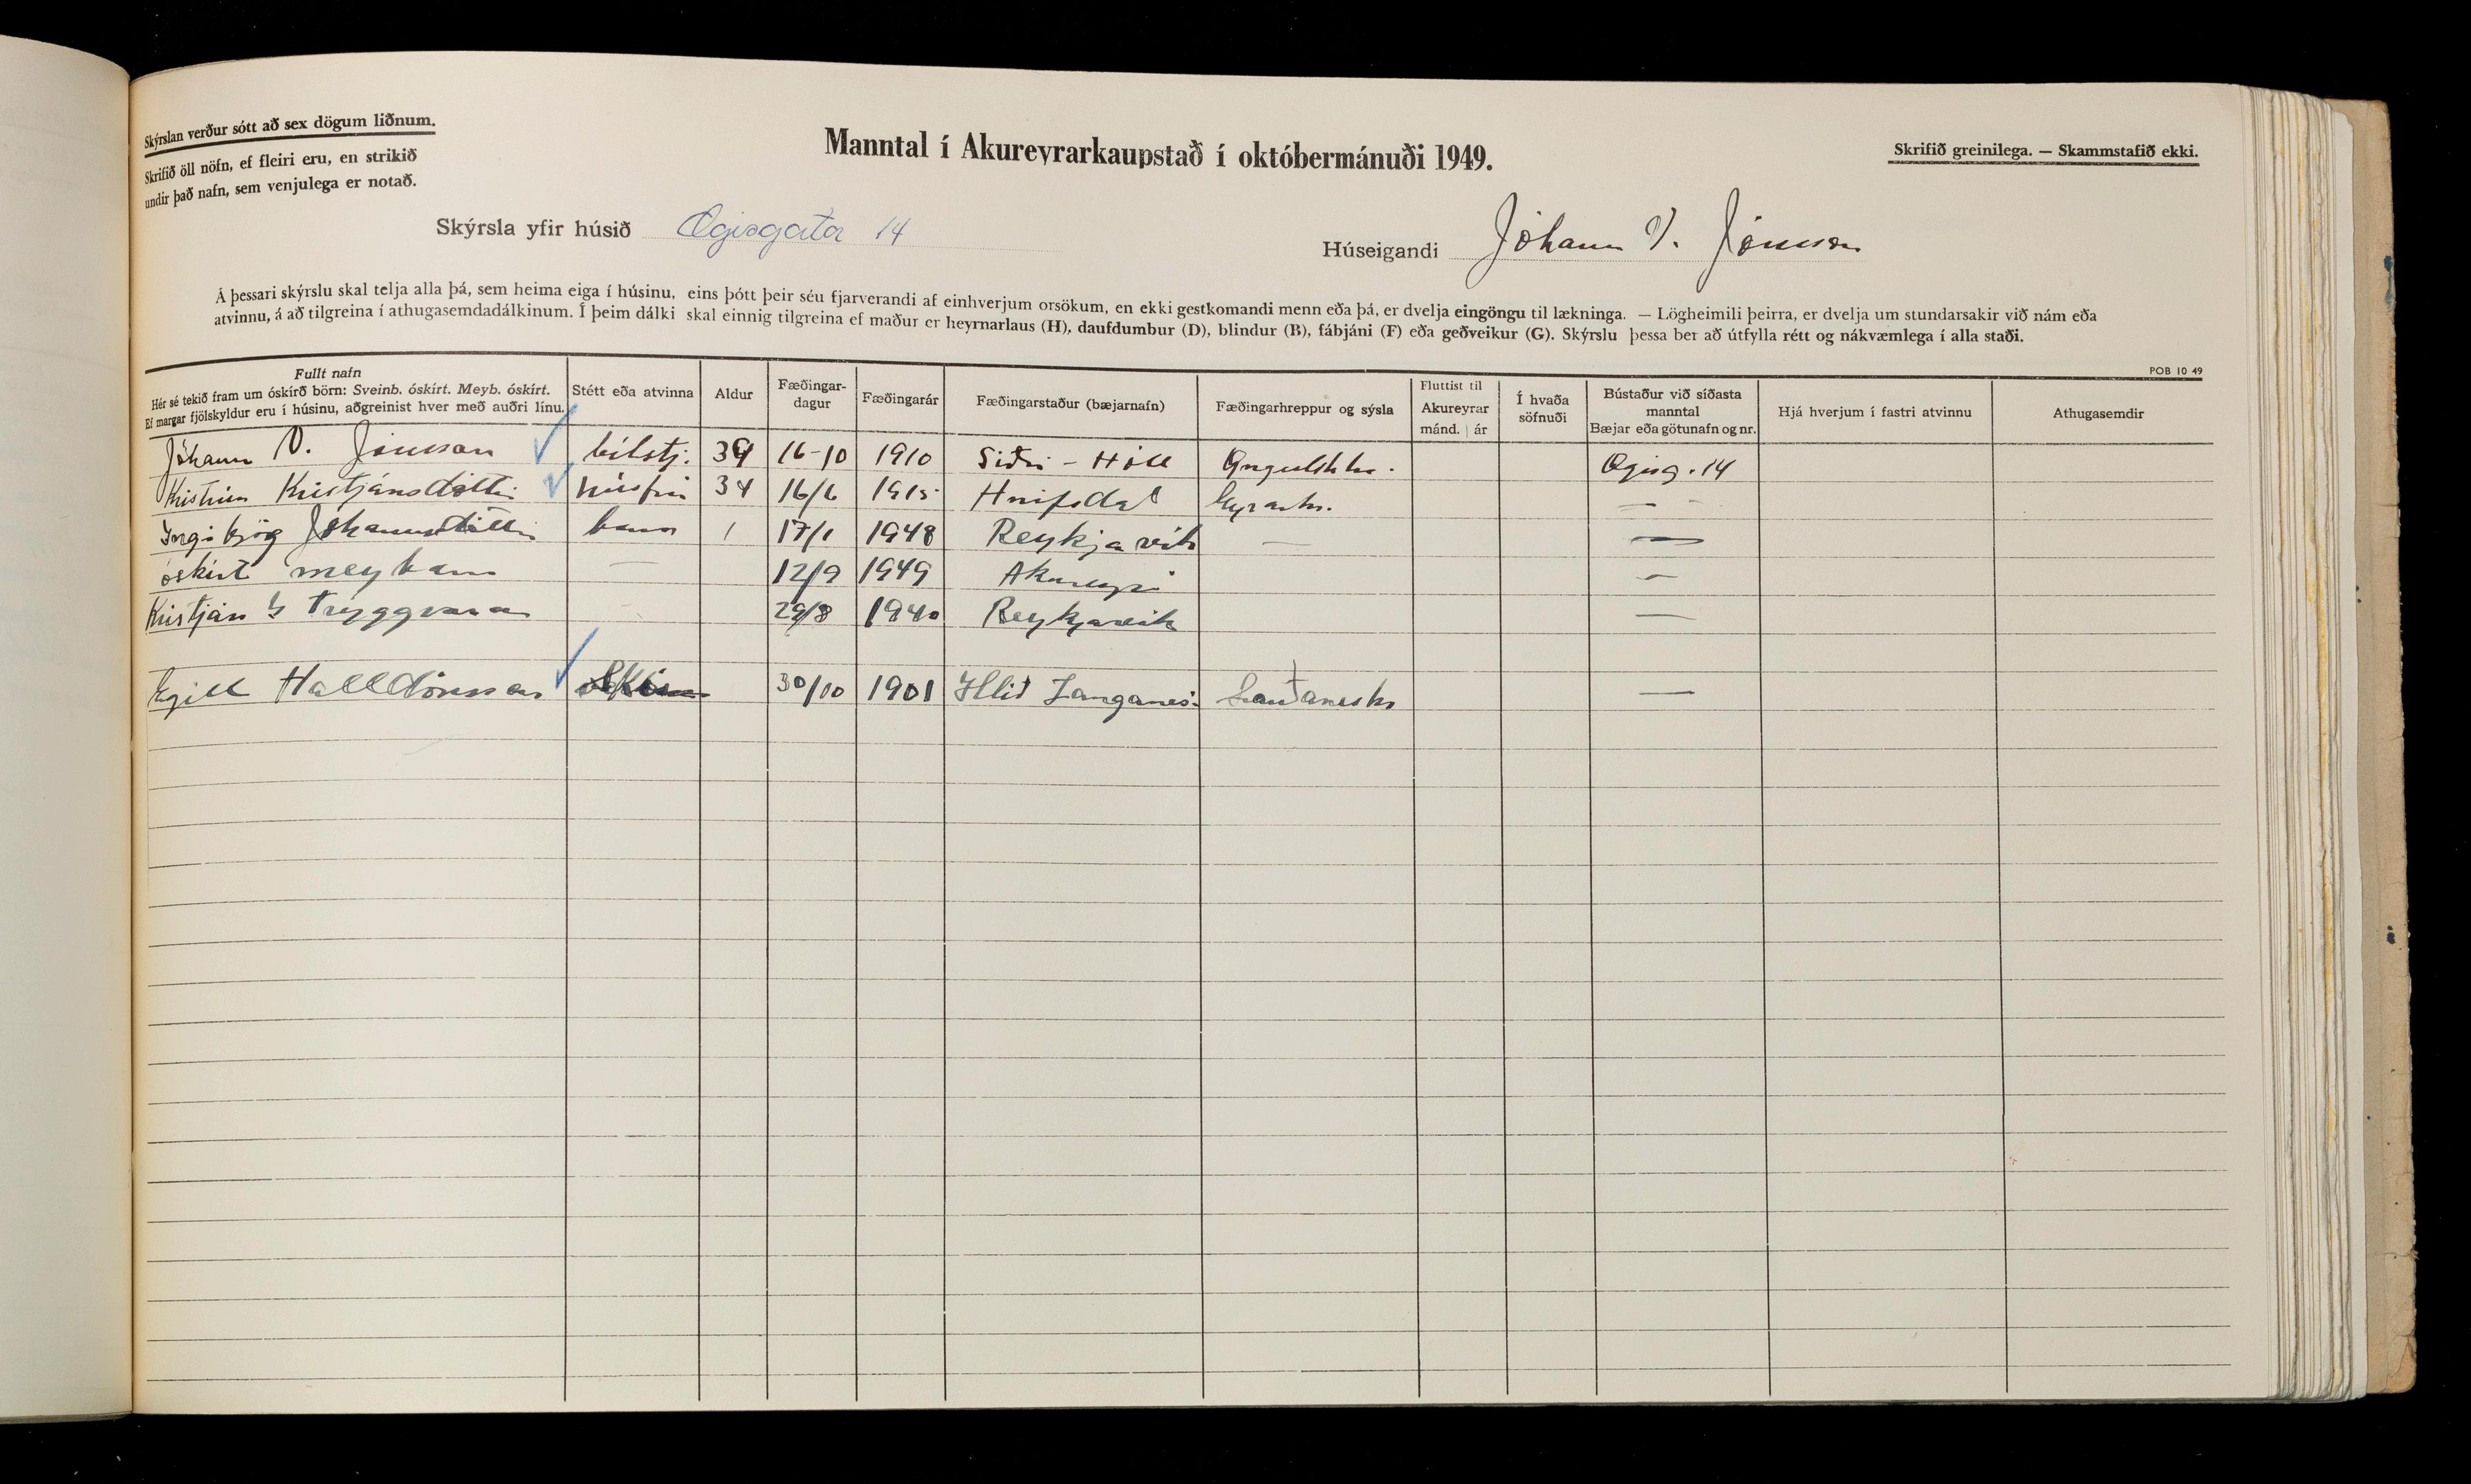 Skýrslan verður sótt að sex dögum liðnum.
Skrifið öll nöfn, ef fleiri eru, en strikið
undir það nafn, sem venjulega er notað.
Manntal í Akureyrarkaupstað í októbermánuði 1949.
Skrifið greinilega. — Skammstafið ekki.
Skýrsla yfir húsið Ægisgata 14
Húseigandi Jóhann V. Jónsson
Á þessari skýrslu skal telja alla þá, sem heima eiga í húsinu, eins þótt þeir séu fjarverandi af einhverjum orsökum, en ekki gestkomandi menn eða þá, er dvelja eingöngu til lækninga. — Lögheimili þeirra, er dvelja um stundarsakir við nám eða
atvinnu, á að tilgreina í athugasemdadálkinum. Í þeim dálki skal einnig tilgreina ef maður er heyrnarlaus (H), daufdumbur (D), blindur (B), fábjáni (F) eða geðveikur (G). Skýrslu þessa ber að útfylla rétt og nákvæmlega í alla staði.
POB 10 49
Fullt nafn
Hér sé tekið fram um óskírð börn: Sveinb. óskírt. Meyb. óskírt.
Ef margar fjölskyldur eru í húsinu, aðgreinist hver með auðri línu.
Stétt eða atvinna
Aldur
Fæðingar-
dagur
Fæðingarár
Fæðingarstaður (bæjarnafn)
Fæðingarhreppur og sýsla
Fluttist til
Akureyrar
mánd. | ár
Í hvaða
söfnuði
Bústaður við síðasta
manntal
Bæjar eða götunafn og nr.
Hjá hverjum í fastri atvinnu
Athugasemdir
Jóhann V. Jónsson bílstj. 39 16-10 1910 Siðri-Hóll Öngulshr. Ægisg. 14
Kristín Kristjánsdóttir húsfrú 34 16/6 1915 Hnífsdal Eyrarhr. —
Ingibjög Jóhannsdóttir barn 1 17/1 1948 Reykjavik — —
óskírt meybarn — 12/9 1949 Akureyri —
Kristján Tryggvason — 29/8 1940 Reykjavik —
Egill Halldórsson 30/10 1901 Hlíð Langanes. Sauðaneshr —